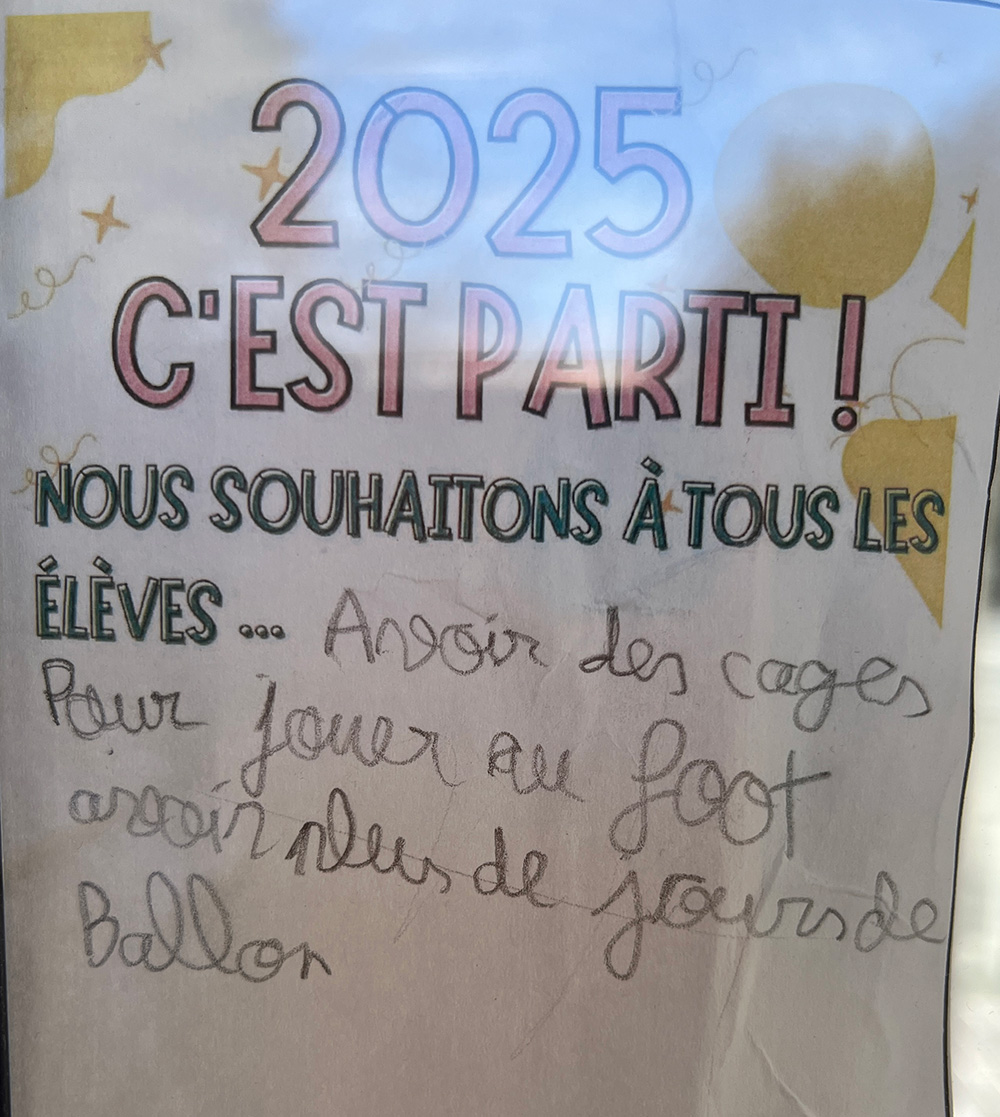 2025
C'EST PARTI !
NOUS SOUHAITONS À TOUS LES
ÉLÈVES ... Avoir des cages
Pour jouer au foot
avoir plus de jours de
Ballon